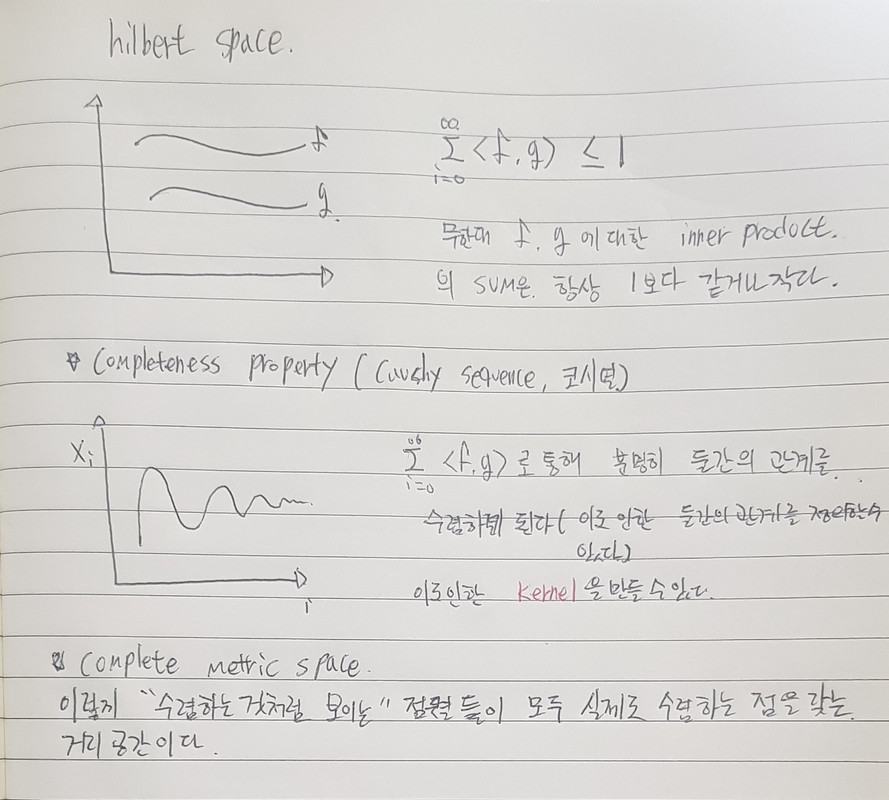 hilbert space.
f
g.
∞
Σ <f, g> ≤ 1
i=0
무한대 f, g 에 대한 inner product.
의 SUM은 항상 1보다 같거나 작다.
Completeness property ( Cauchy sequence, 코시열)
Xi
i
∞
Σ <f, g> 로 통해 분명히 둘간의 관계를
i=0
수렴하게 된다 ( 이로 인한 둘간의 관계를 정의할수
있다)
이로인한 Kernel 을 만들 수 있다.
Complete metric space.
이렇게 "수렴하는 것처럼 보이는" 점렬 들이 모두 실제로 수렴하는 점을 갖는
거리 공간이다.